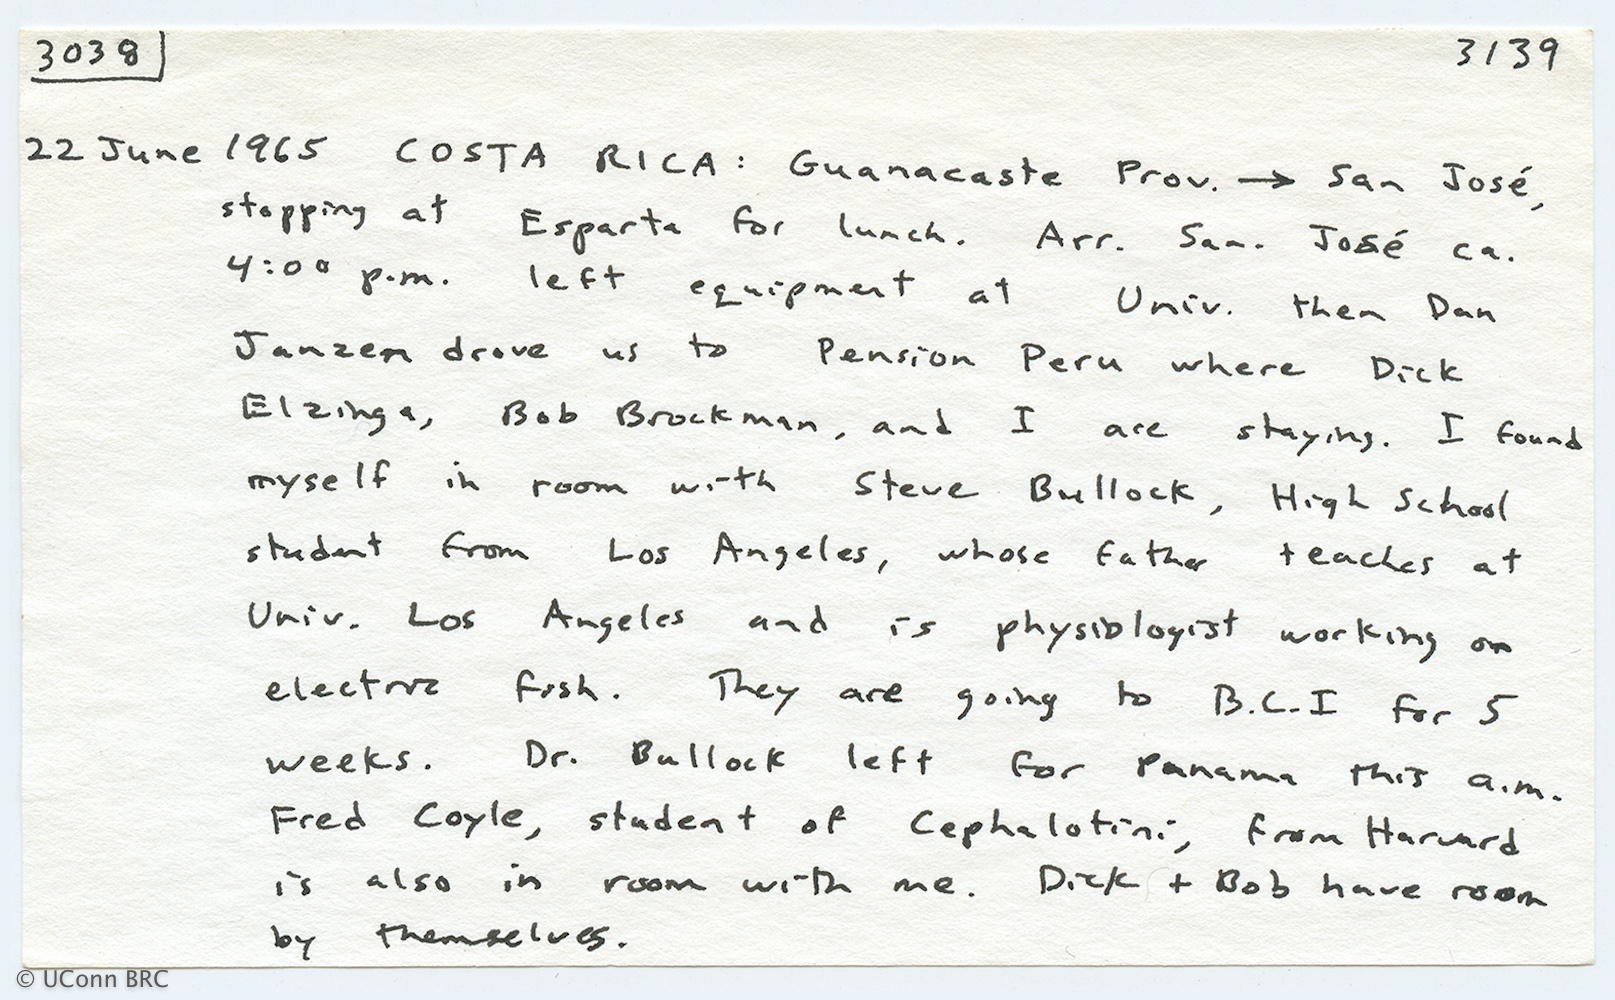 3038 3139
22 June 1965 COSTA RICA: Guanacaste Prov. → San José,
stopping at Esparta for lunch. Arr. San. José ca.
4:00 p.m. left equipment at Univ. then Dan
Janzen drove us to Pension Peru where Dick
Elzinga, Bob Brockman, and I are staying. I found
myself in room with Steve Bullock, High School
student from Los Angeles, whose father teaches at
Univ. Los Angeles and is physiologist working on
electric fish. They are going to B.C.I for 5
weeks. Dr. Bullock left for Panama this a.m.
Fred Coyle, student of Cephalotini, from Harvard
is also in room with me. Dick + Bob have room
by themselves.
© UConn BRC